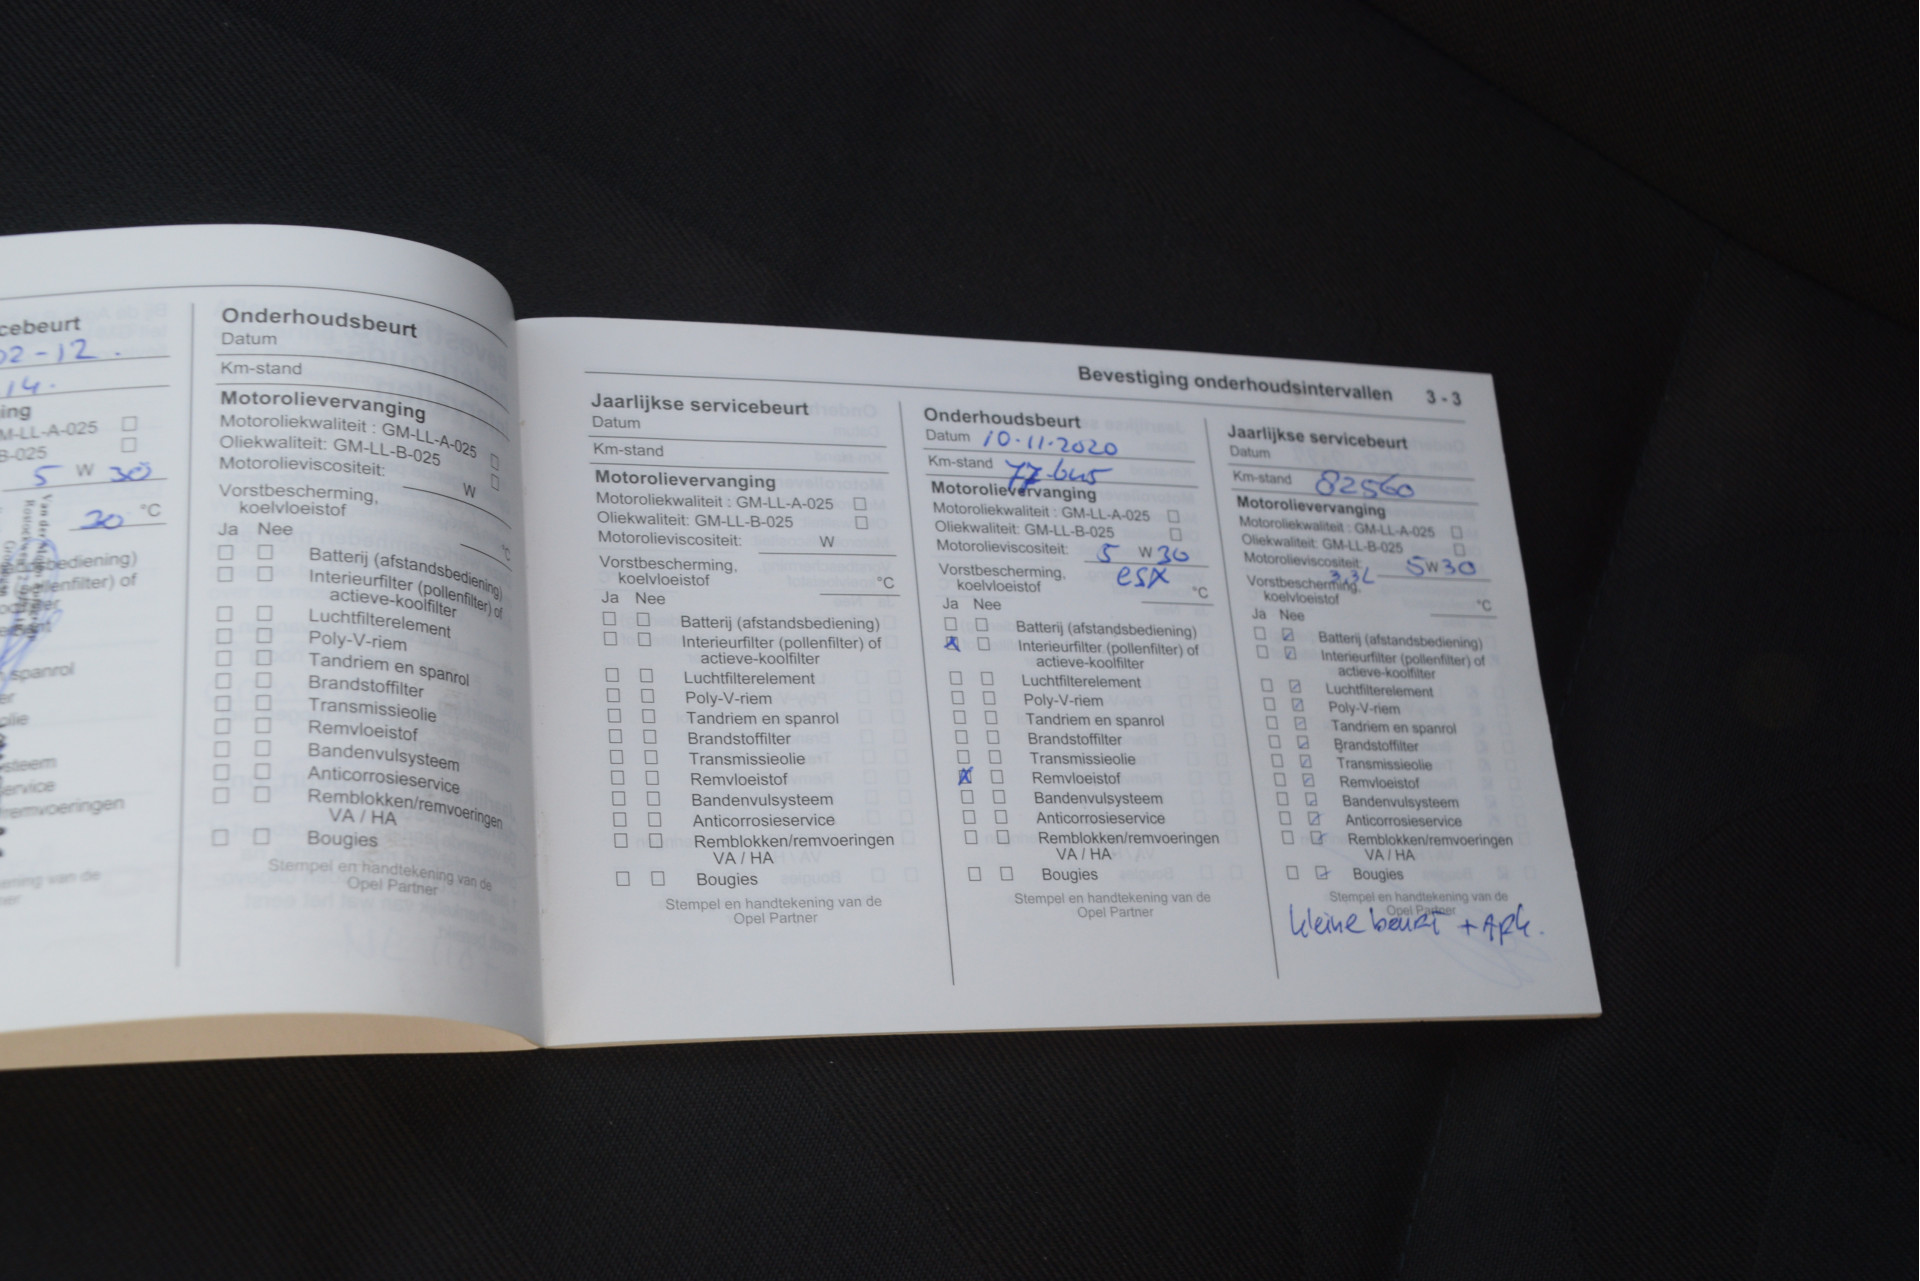 cebeurt
02-12.
14.
ing
M-LL-A-025
B-025
5 W 30
20 °C
bediening)
enfilter) of
spanrol
er
olie
steem
ervice
remvoeringen
Onderhoudsbeurt
Datum
Km-stand
Motorolievervanging
Motoroliekwaliteit : GM-LL-A-025
Oliekwaliteit: GM-LL-B-025
Motorolieviscositeit:
W
Vorstbescherming,
koelvloeistof
°C
Ja Nee
Batterij (afstandsbediening)
Interieurfilter (pollenfilter) of
actieve-koolfilter
Luchtfilterelement
Poly-V-riem
Tandriem en spanrol
Brandstoffilter
Transmissieolie
Remvloeistof
Bandenvulsysteem
Anticorrosieservice
Remblokken/remvoeringen
VA / HA
Bougies
Stempel en handtekening van de
Opel Partner
Bevestiging onderhoudsintervallen 3 - 3
Jaarlijkse servicebeurt
Datum
Km-stand
Motorolievervanging
Motoroliekwaliteit : GM-LL-A-025
Oliekwaliteit: GM-LL-B-025
Motorolieviscositeit: W
Vorstbescherming,
koelvloeistof °C
Ja Nee
Batterij (afstandsbediening)
Interieurfilter (pollenfilter) of
actieve-koolfilter
Luchtfilterelement
Poly-V-riem
Tandriem en spanrol
Brandstoffilter
Transmissieolie
Remvloeistof
Bandenvulsysteem
Anticorrosieservice
Remblokken/remvoeringen
VA / HA
Bougies
Stempel en handtekening van de
Opel Partner
Onderhoudsbeurt
Datum 10-11-2020
Km-stand
Motorolievervanging
Motoroliekwaliteit : GM-LL-A-025
Oliekwaliteit: GM-LL-B-025
Motorolieviscositeit: 5 W 30
Vorstbescherming, esx
koelvloeistof °C
Ja Nee
Batterij (afstandsbediening)
Interieurfilter (pollenfilter) of
actieve-koolfilter
Luchtfilterelement
Poly-V-riem
Tandriem en spanrol
Brandstoffilter
Transmissieolie
Remvloeistof
Bandenvulsysteem
Anticorrosieservice
Remblokken/remvoeringen
VA / HA
Bougies
Stempel en handtekening van de
Opel Partner
Jaarlijkse servicebeurt
Datum
Km-stand 82560
Motorolievervanging
Motoroliekwaliteit : GM-LL-A-025
Oliekwaliteit: GM-LL-B-025
Motorolieviscositeit: 5 W 30
3,3L
Vorstbescherming,
koelvloeistof °C
Ja Nee
Batterij (afstandsbediening)
Interieurfilter (pollenfilter) of
actieve-koolfilter
Luchtfilterelement
Poly-V-riem
Tandriem en spanrol
Brandstoffilter
Transmissieolie
Remvloeistof
Bandenvulsysteem
Anticorrosieservice
Remblokken/remvoeringen
VA / HA
Bougies
Stempel en handtekening van de
Opel Partner
kleine beurt + APK.